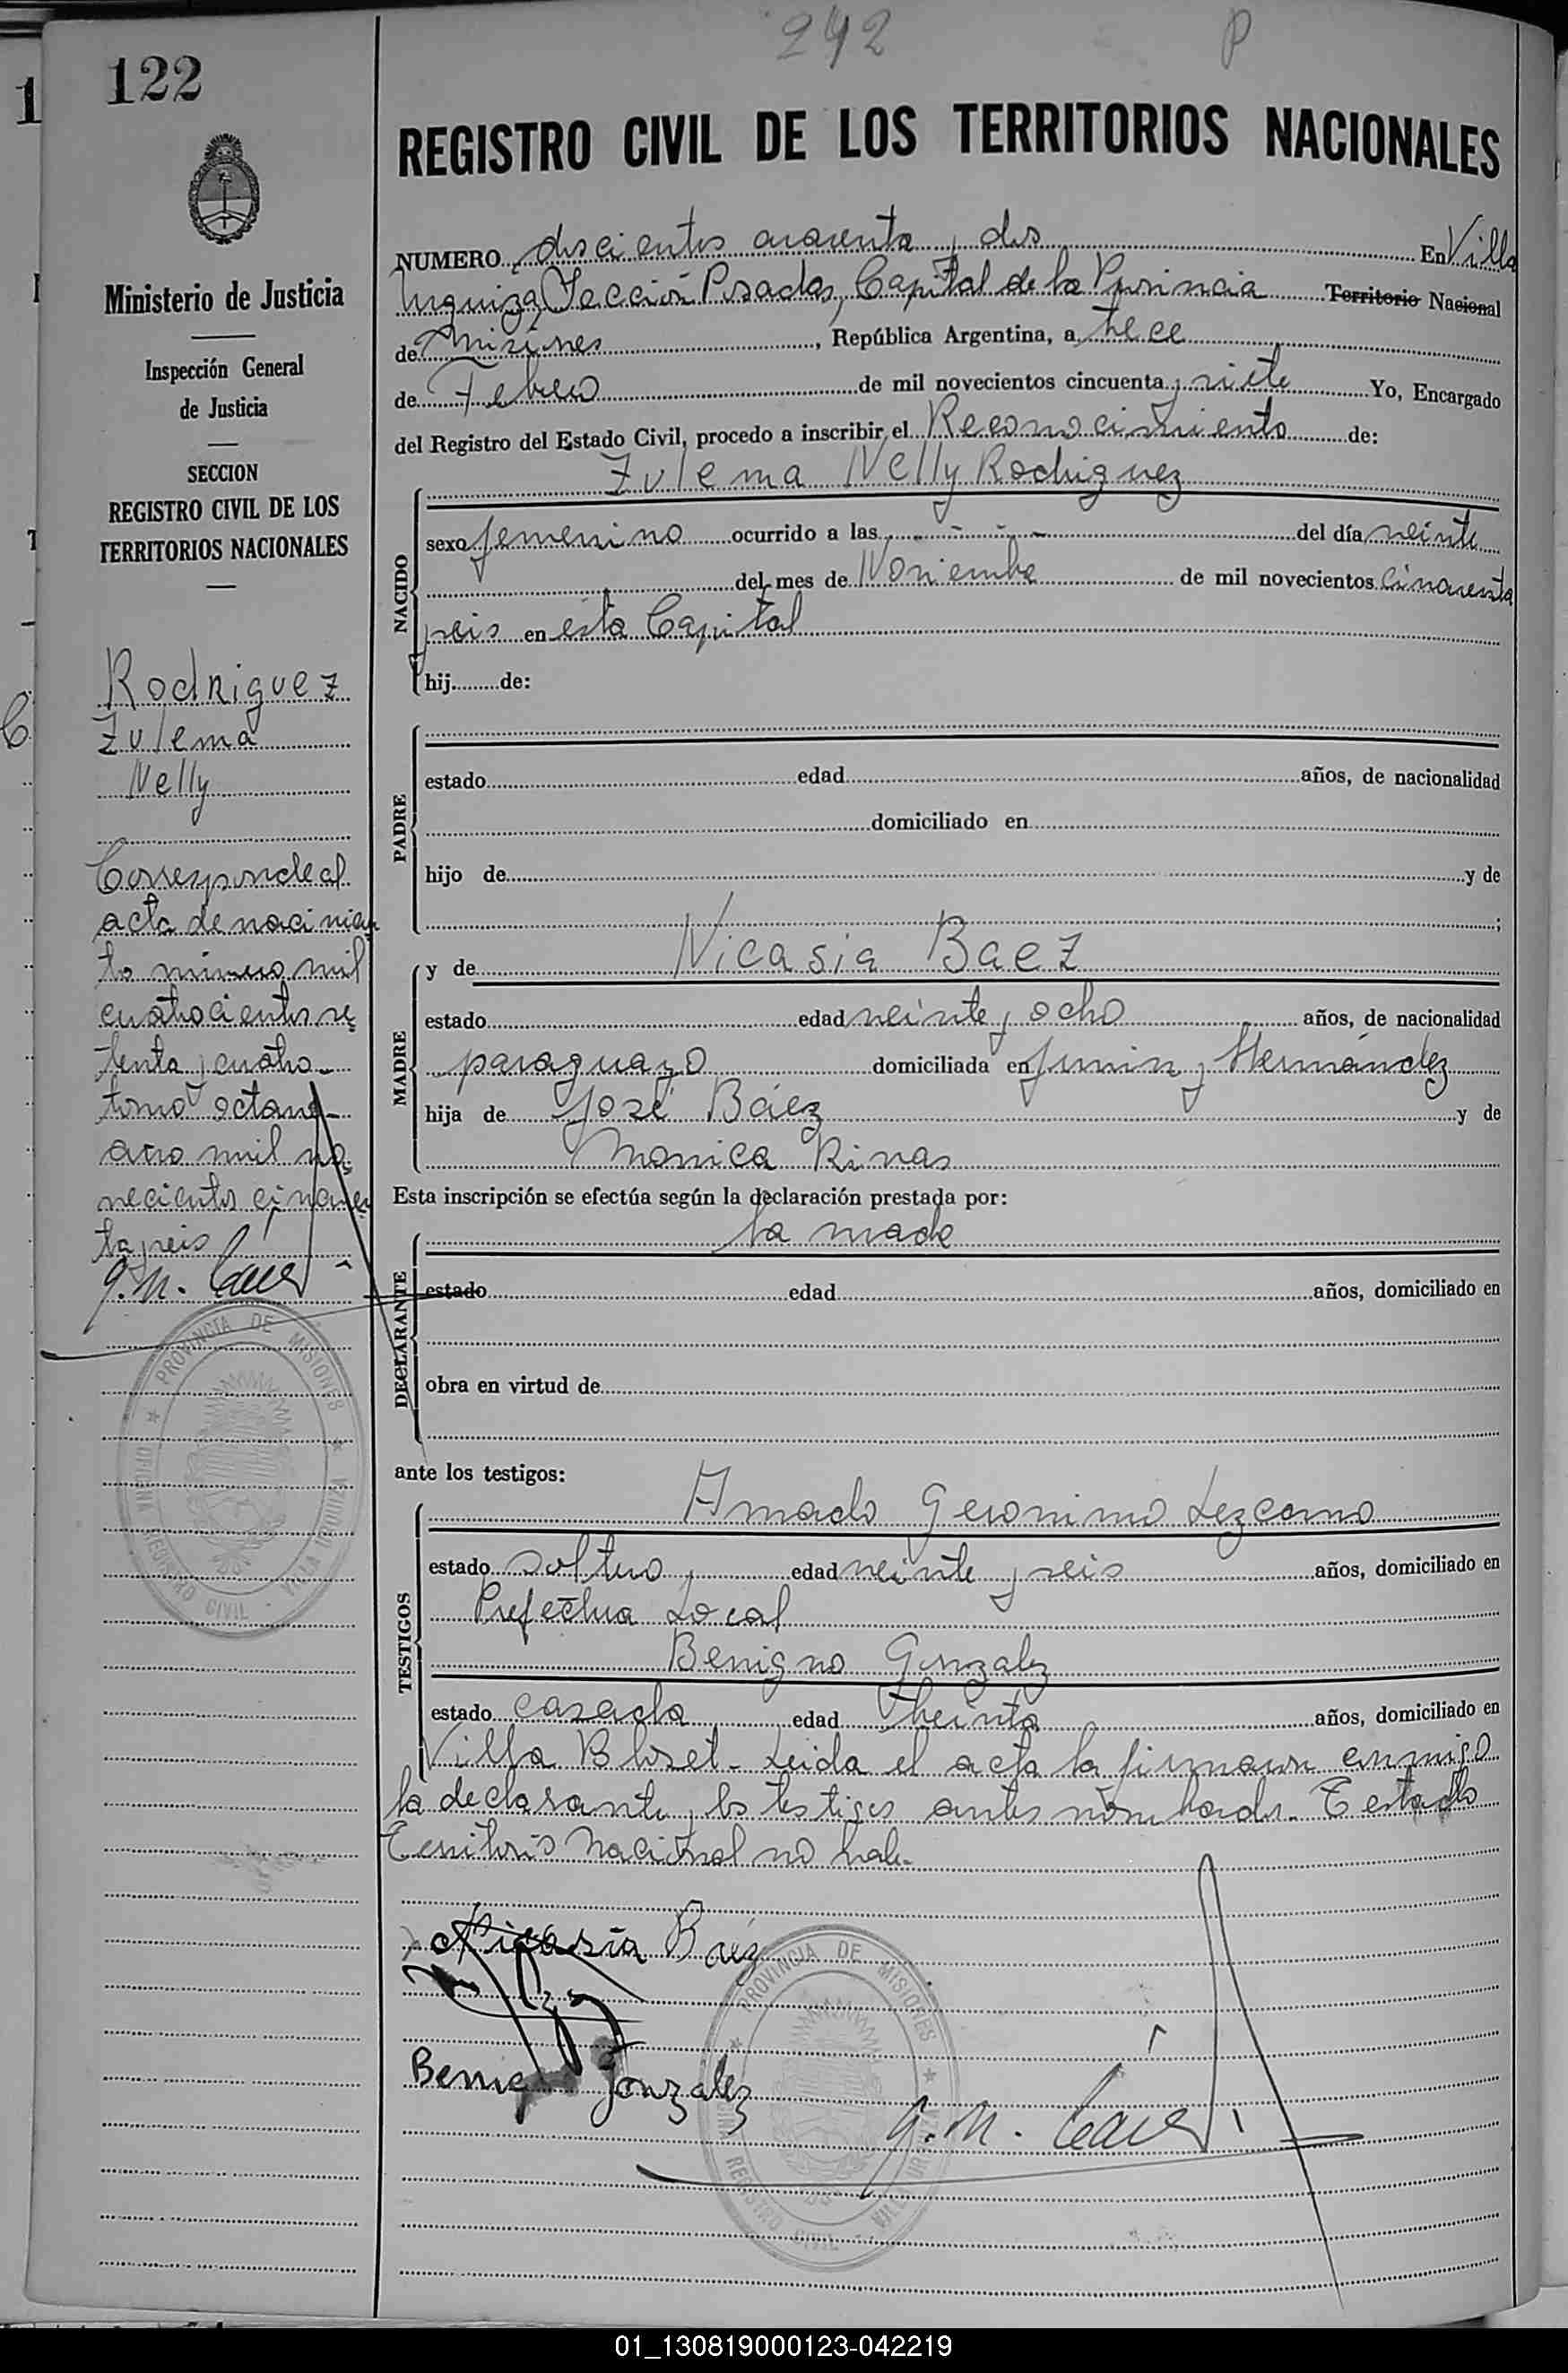 242 P
122
REGISTRO CIVIL DE LOS TERRITORIOS NACIONALES
Ministerio de Justicia
Inspección General
de Justicia
SECCION
REGISTRO CIVIL DE LOS
TERRITORIOS NACIONALES
Rodriguez
Zulema
Nelly
Corresponde al
acta de nacimien
to número mil
cuatrocientos se
tenta y cuatro
tomo octavo
año mil no
vecientos cincuen
ta y seis
PROVINCIA DE MISIONES
OFICINA REGISTRO CIVIL - VILLA URQUIZA
NUMERO doscientos cuarenta y dos En Villa
Urquiza, Sección Posadas, Capital de la Provincia Territorio Nacional
de Misiones, República Argentina, a trece
de Febrero de mil novecientos cincuenta y siete Yo, Encargado
del Registro del Estado Civil, procedo a inscribir el Reconocimiento de:
NACIDO
Zulema Nelly Rodriguez
sexo femenino ocurrido a las - - - del día veinte
del mes de Noviembre de mil novecientos cincuenta
y seis en esta Capital
hij de:
PADRE
estado edad años, de nacionalidad
domiciliado en
hijo de y de
;
MADRE
y de Nicasia Baez
estado edad veinte y ocho años, de nacionalidad
paraguayo domiciliada en Junin y Hernández
hija de José Báez y de
Monica Rivas
Esta inscripción se efectúa según la declaración prestada por:
DECLARANTE
la madre
estado edad años, domiciliado en
obra en virtud de
ante los testigos:
TESTIGOS
Amado Geronimo Lezcano
estado soltero, edad veinte y seis años, domiciliado en
Prefectura Local
Benigno Gonzalez
estado casado edad treinta años, domiciliado en
Villa Blosset - Leida el acta la firmaron conmigo
la declarante y los testigos antes nombrados. Testado
Territorio Nacional no vale.
Nicasia Baez
Benig Gonzalez
PROVINCIA DE MISIONES
REGISTRO CIVIL - VILLA URQUIZA
01_130819000123-042219